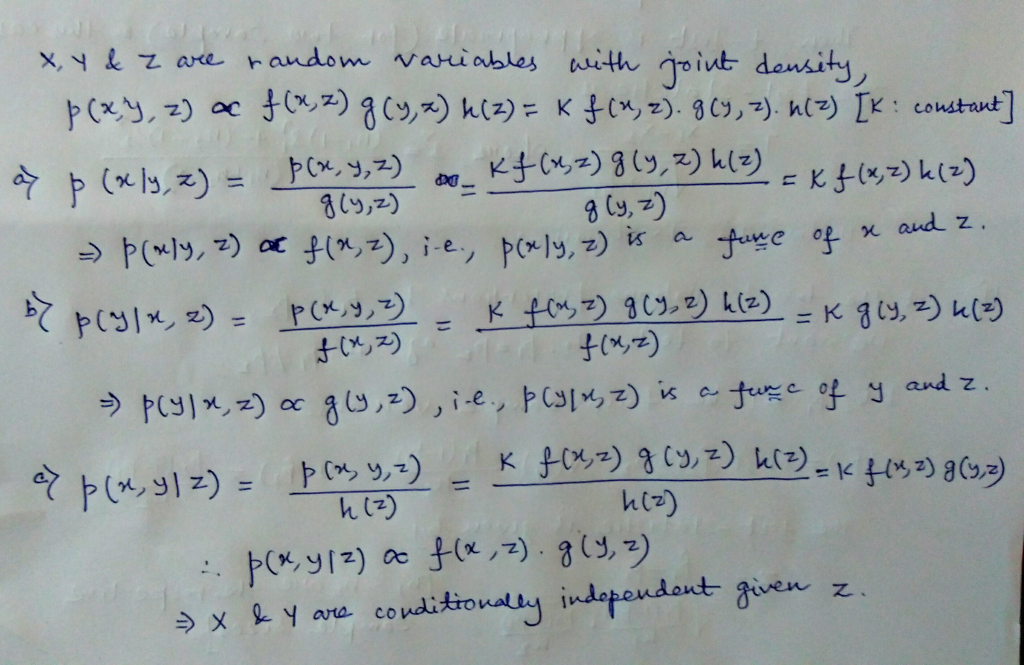 X, Y & Z are random variables with joint density,
p(x,y, z) ∝ f(x,z) g(y,z) h(z) = K f(x, z). g(y, z). h(z) [K : constant]
a) p (x|y, z) = p(x, y, z) / g(y,z) = K f(x,z) g(y, z) h(z) / g(y, z) = K f(x,z) h(z)
⇒ p(x|y, z) ∝ f(x,z), i.e., p(x|y, z) is a func of x and z.
b) p(y|x, z) = p(x,y,z) / f(x,z) = K f(x,z) g(y,z) h(z) / f(x,z) = K g(y,z) h(z)
⇒ p(y|x,z) ∝ g(y,z), i.e., p(y|x,z) is a func of y and z.
c) p(x, y|z) = p(x, y,z) / h(z) = K f(x,z) g(y,z) h(z) / h(z) = K f(x,z) g(y,z)
∴ p(x, y|z) ∝ f(x,z). g(y, z)
⇒ X & Y are conditionally independent given z.